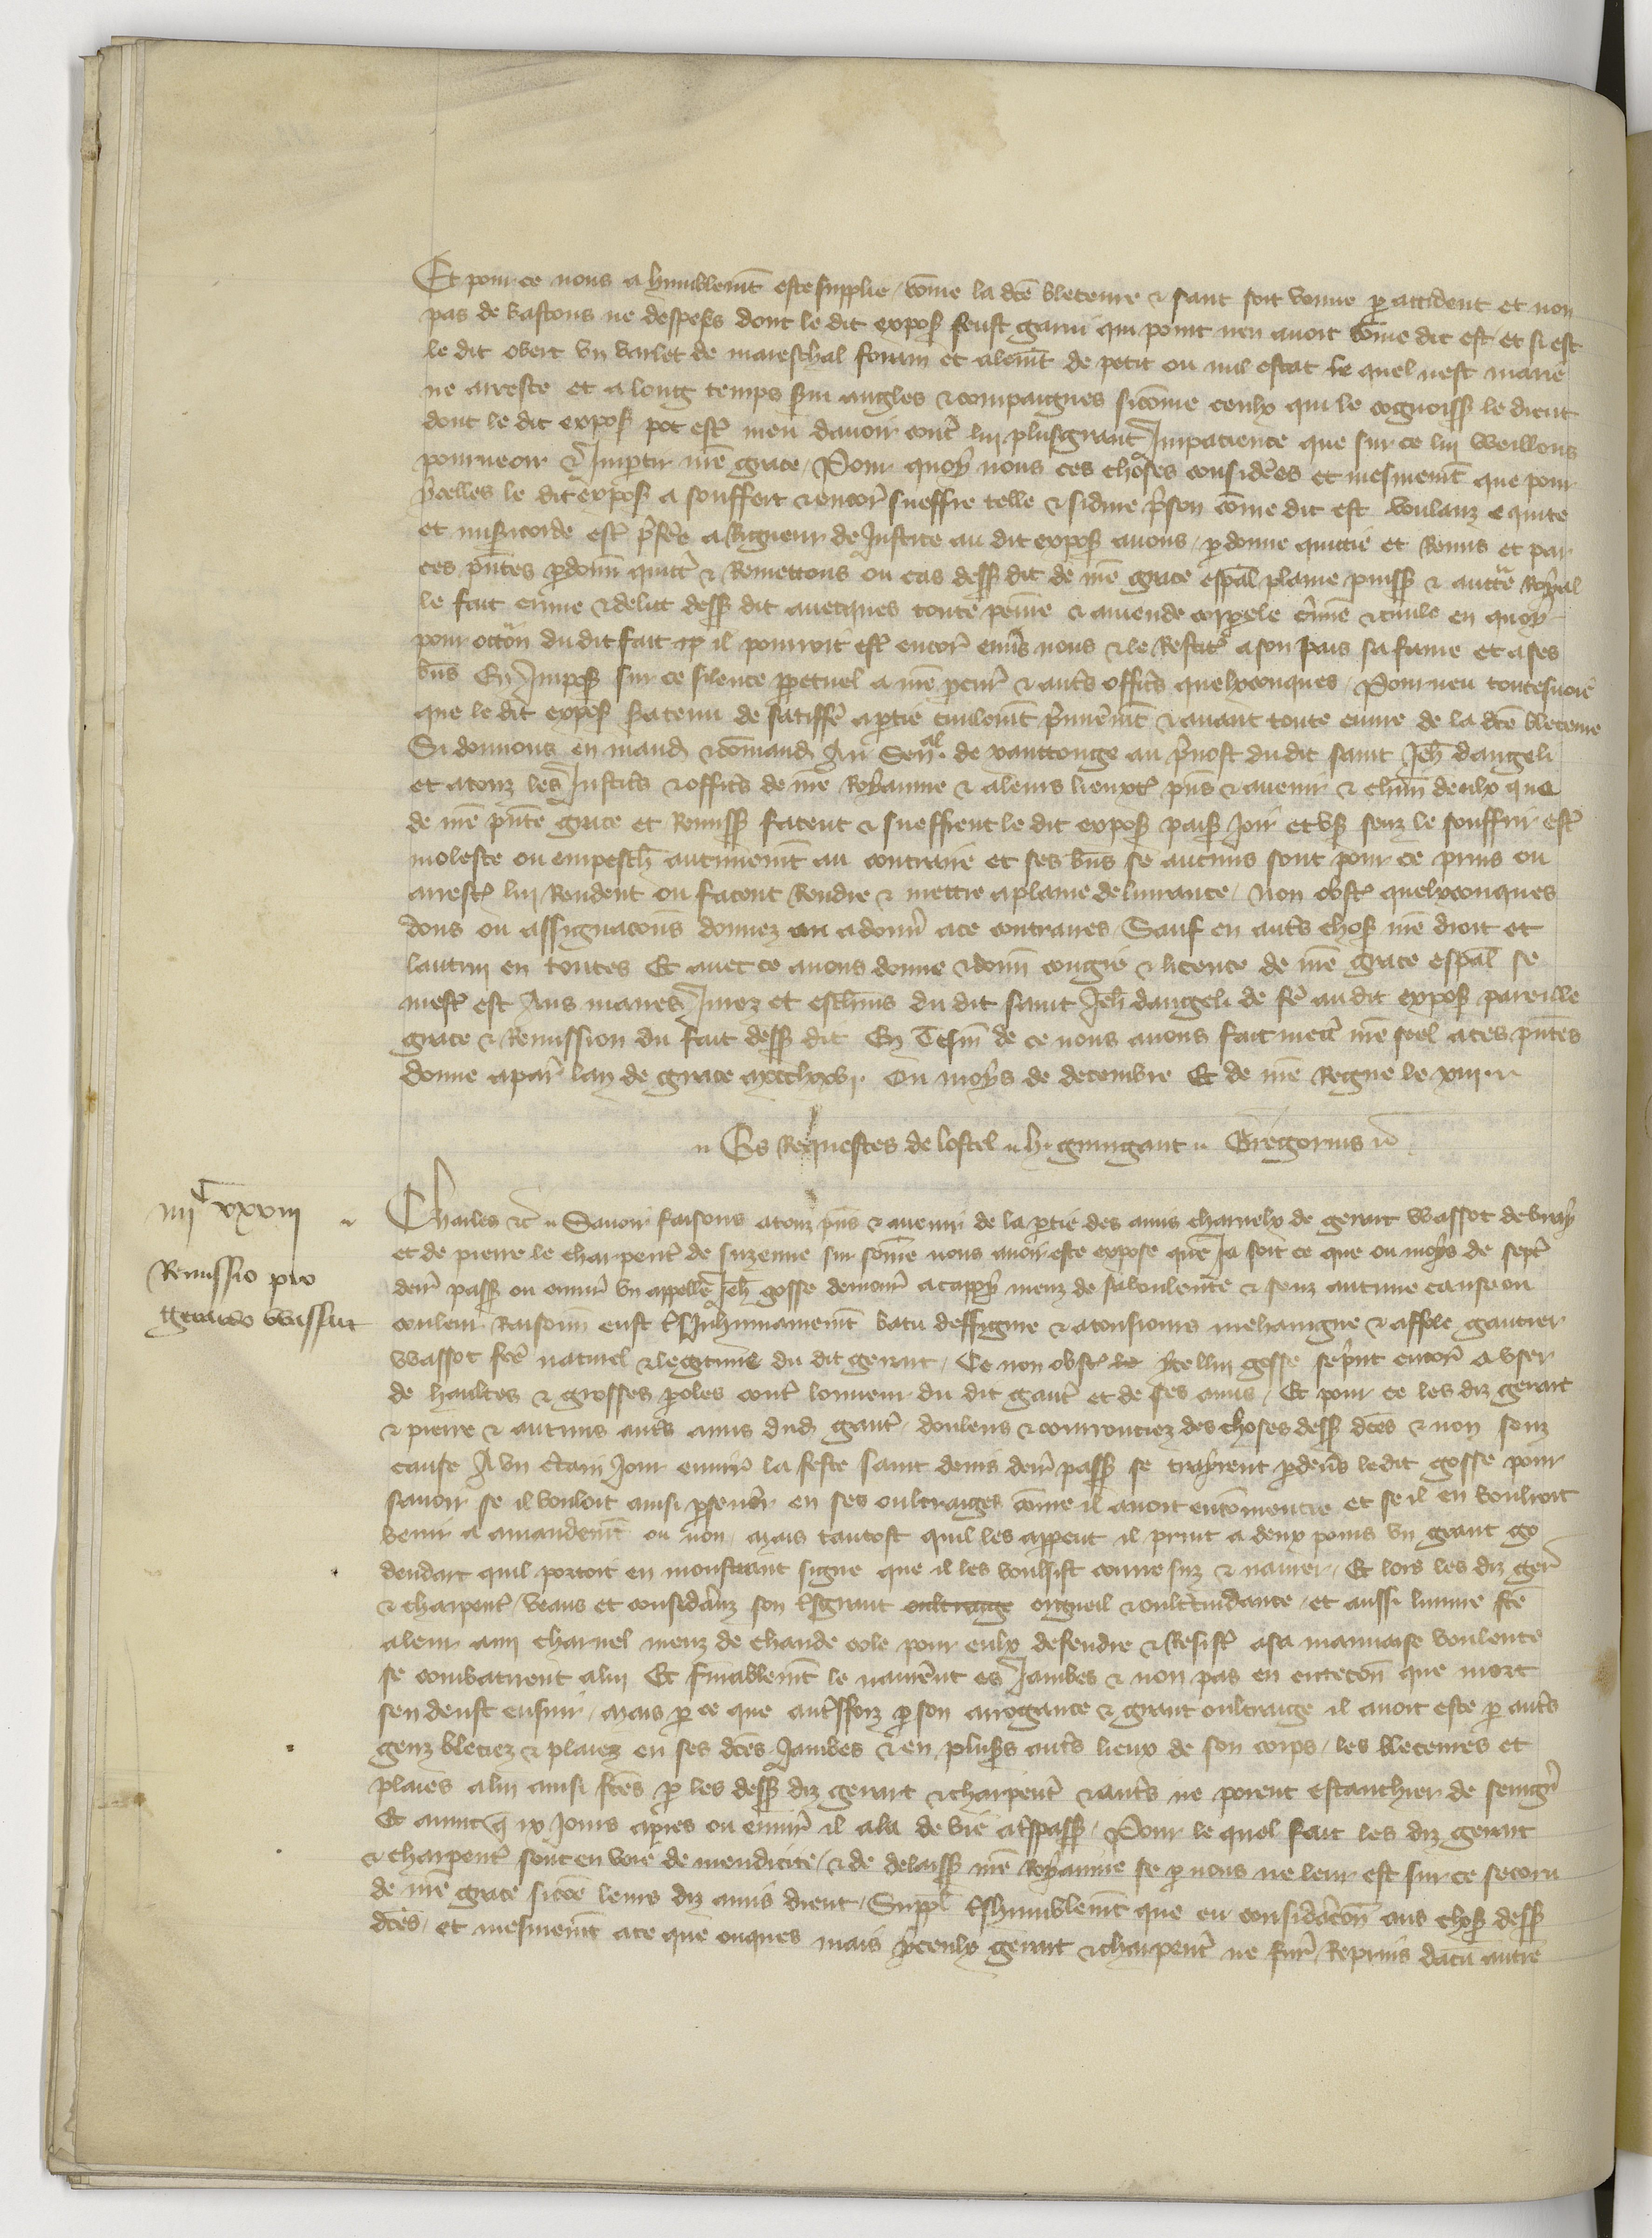 Et pour ce nous a humblemt este supplie come la dce bleceure & sanc soit venue p accident et non
pas de bastons ne despees dont le dit expos feust garni qui point nen avoit come dit est et si est
le dit obeit un varlet de mareschal forain et alent de petit ou nul estat le quel nest marie
ne arreste et a long temps suy angles & compaignes sicome ceulx qui le cognoiss le dient
dont le dit expos pot est meu davoir cont lui plusgrant Impacience que sur ce lui veillons
pourveoir & Impartir nre grace Pour quoy nous ces choses consideres et mesmemt que pour
ycelles le dit expos a souffert & encor sueffre telle & si dure prison come dit est voulanz equite
et misericorde est prefer a Rigueur de Justice au dit expos avons pdonne quictie et Remis et par
ces pntes pdonn quict & Remettons ou cas dess dit de nre grace espal plaine puiss & auctte Royal
le fait crime & delict dess dit avecques toute peine & amende corporele crimele & civile en quoy
pour occon du dit fait il pourroit est encor envs nous & le Restit a son pais sa fame et a ses
bns En Impos sur ce silence ppetuel a nre pcur & auts offics quelxconques Pourveu toutesvoie
que le dit expos sera tenu de satiffe a ptie civilemt primemt & avant toute euvre de la dce bleceure
Si donnons en mand & comand Au Senal de xanctonge au prevost du dit saint Jeh dangeli
et a touz les Justics & offics de nre Royaume & a leurs lieuxt pns & avenir & chun deulx que
de nre pnte grace et Remiss facent & sueffrent le dit expos pais joir et us senz le souffrir est
moleste ou empesch aucunemt au contraire et ses bns se aucuns sont pour ce prins ou
arrest lui Rendent ou facent Rendre & mettre a plaine delivrance Non obst quelxconques
dons ou assignacons donnez ou a donn a ce contraires Sauf en auts chos nre droit et
lautruy en toutes Et avec ce avons donne & donn congie & licence de nre grace espal se
mest est Aus maires Jurez et eschevins du dit saint Jeh dangeli de fe au dit expos pareille
grace & Remission du fait dess dit En Tesm de ce nous avons fait mett nre seel a ces pntes
donne a par lan de grace mccclxxvj Ou moys de decembre Et de nre Regne le xiij
Es Requestes de lostel h guingant Gregorius
iiijc xxviij
Remissio pro
Gerardo Wassut
Charles &c Savoir faisons a touz pns & avenir de la ptie des amis charnelx de gerart Wassot de bray
et de pierre le charpent de suzenne sur some nous avoir este expose que Ja soit ce que ou moys de sept
derr pass ou environ un appelle Jeh gosse demour a cappy meuz de sa voulente & senz aucune cause ou
couleur Raisonn eust tsInhumainemt batu deffigure & a tousiours mehaingne & affole gautier
Wassot fre naturel & legitime du dit gerart Ce non obst ycellui gosse se print encor a user
de haultes & grosses poles cont lonneur du dit gaut et de ses amis Et pour ce les diz gerart
& pierre & aucuns auts amis dud gaut doulens & courrouciez des choses dess dces & non senz
cause A un ctain Jour environ la feste saint denis derr pass se trayrent pdevs le dit gosse pour
savoir se il vouloit ainsi psever en ses oultraiges come il avoit encomencie et se il en vouldroit
venir a amandemt ou non mais tantost quil les appceut il print a deux poins un grant go
dendart quil portoit en monstrant signe que il les voulsist courre suz & navrer Et lors les diz ger
& charpent veans et consideranz son tsgrant oultraige orgueil & oultrecuidance et aussi linjure fce
a leur ami charnel meuz de chaude cole pour eulx defendre & Resist a sa mauvaise voulente
se combatirent a lui Et finablemt le navrent es Jambes & non pas en entencon que mort
sen deust ensuir mais p ce que autsfoiz p son arrogance & grant oultraige il avoit este p auts
genz bleciez & plaiez en ses dces Jambes & en pluss auts lieux de son corps les bleceures et
plaies a lui ainsi fces p les dess diz gerart & charpent & auts ne porent estanchier de seingn
Et avint q ix Jours apres ou environ il ala de vie a tspass Pour le quel fait les diz gerart
& charpent sont en voie de mendicite & de delaiss nre Royaume se p nous ne leur est sur ce secoru
de nre grace sicoe leurs diz amis dient Suppl tshumblemt que eu consideracon aus chos dess
dces et mesmemt a ce que onques mais yceulx gerart & charpent ne fur Reprins daucun autre